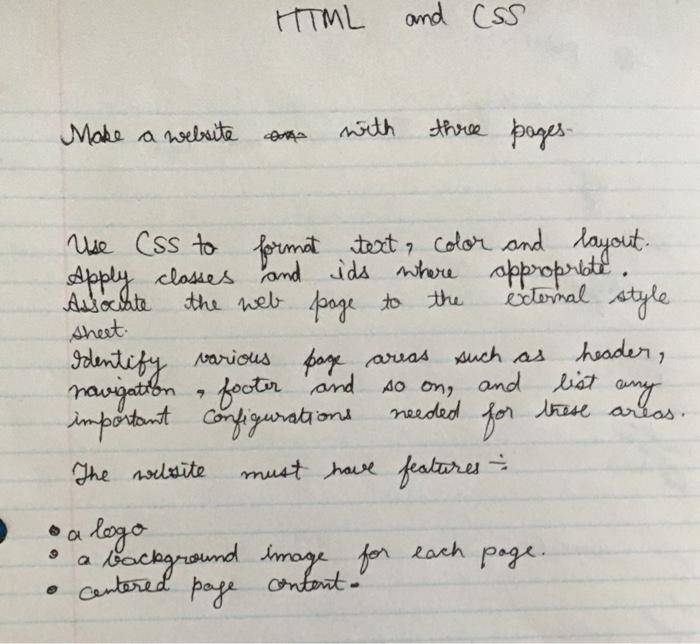 HTML and CSS
Make a website with three pages.
Use CSS to format text, color and layout.
Apply classes and ids where appropriate.
Associate the web page to the external style
sheet.
Identify various page areas such as header,
navigation, footer and so on, and list any
important configurations needed for these areas.
The website must have features :-
• a logo
• a background image for each page.
• centered page content.